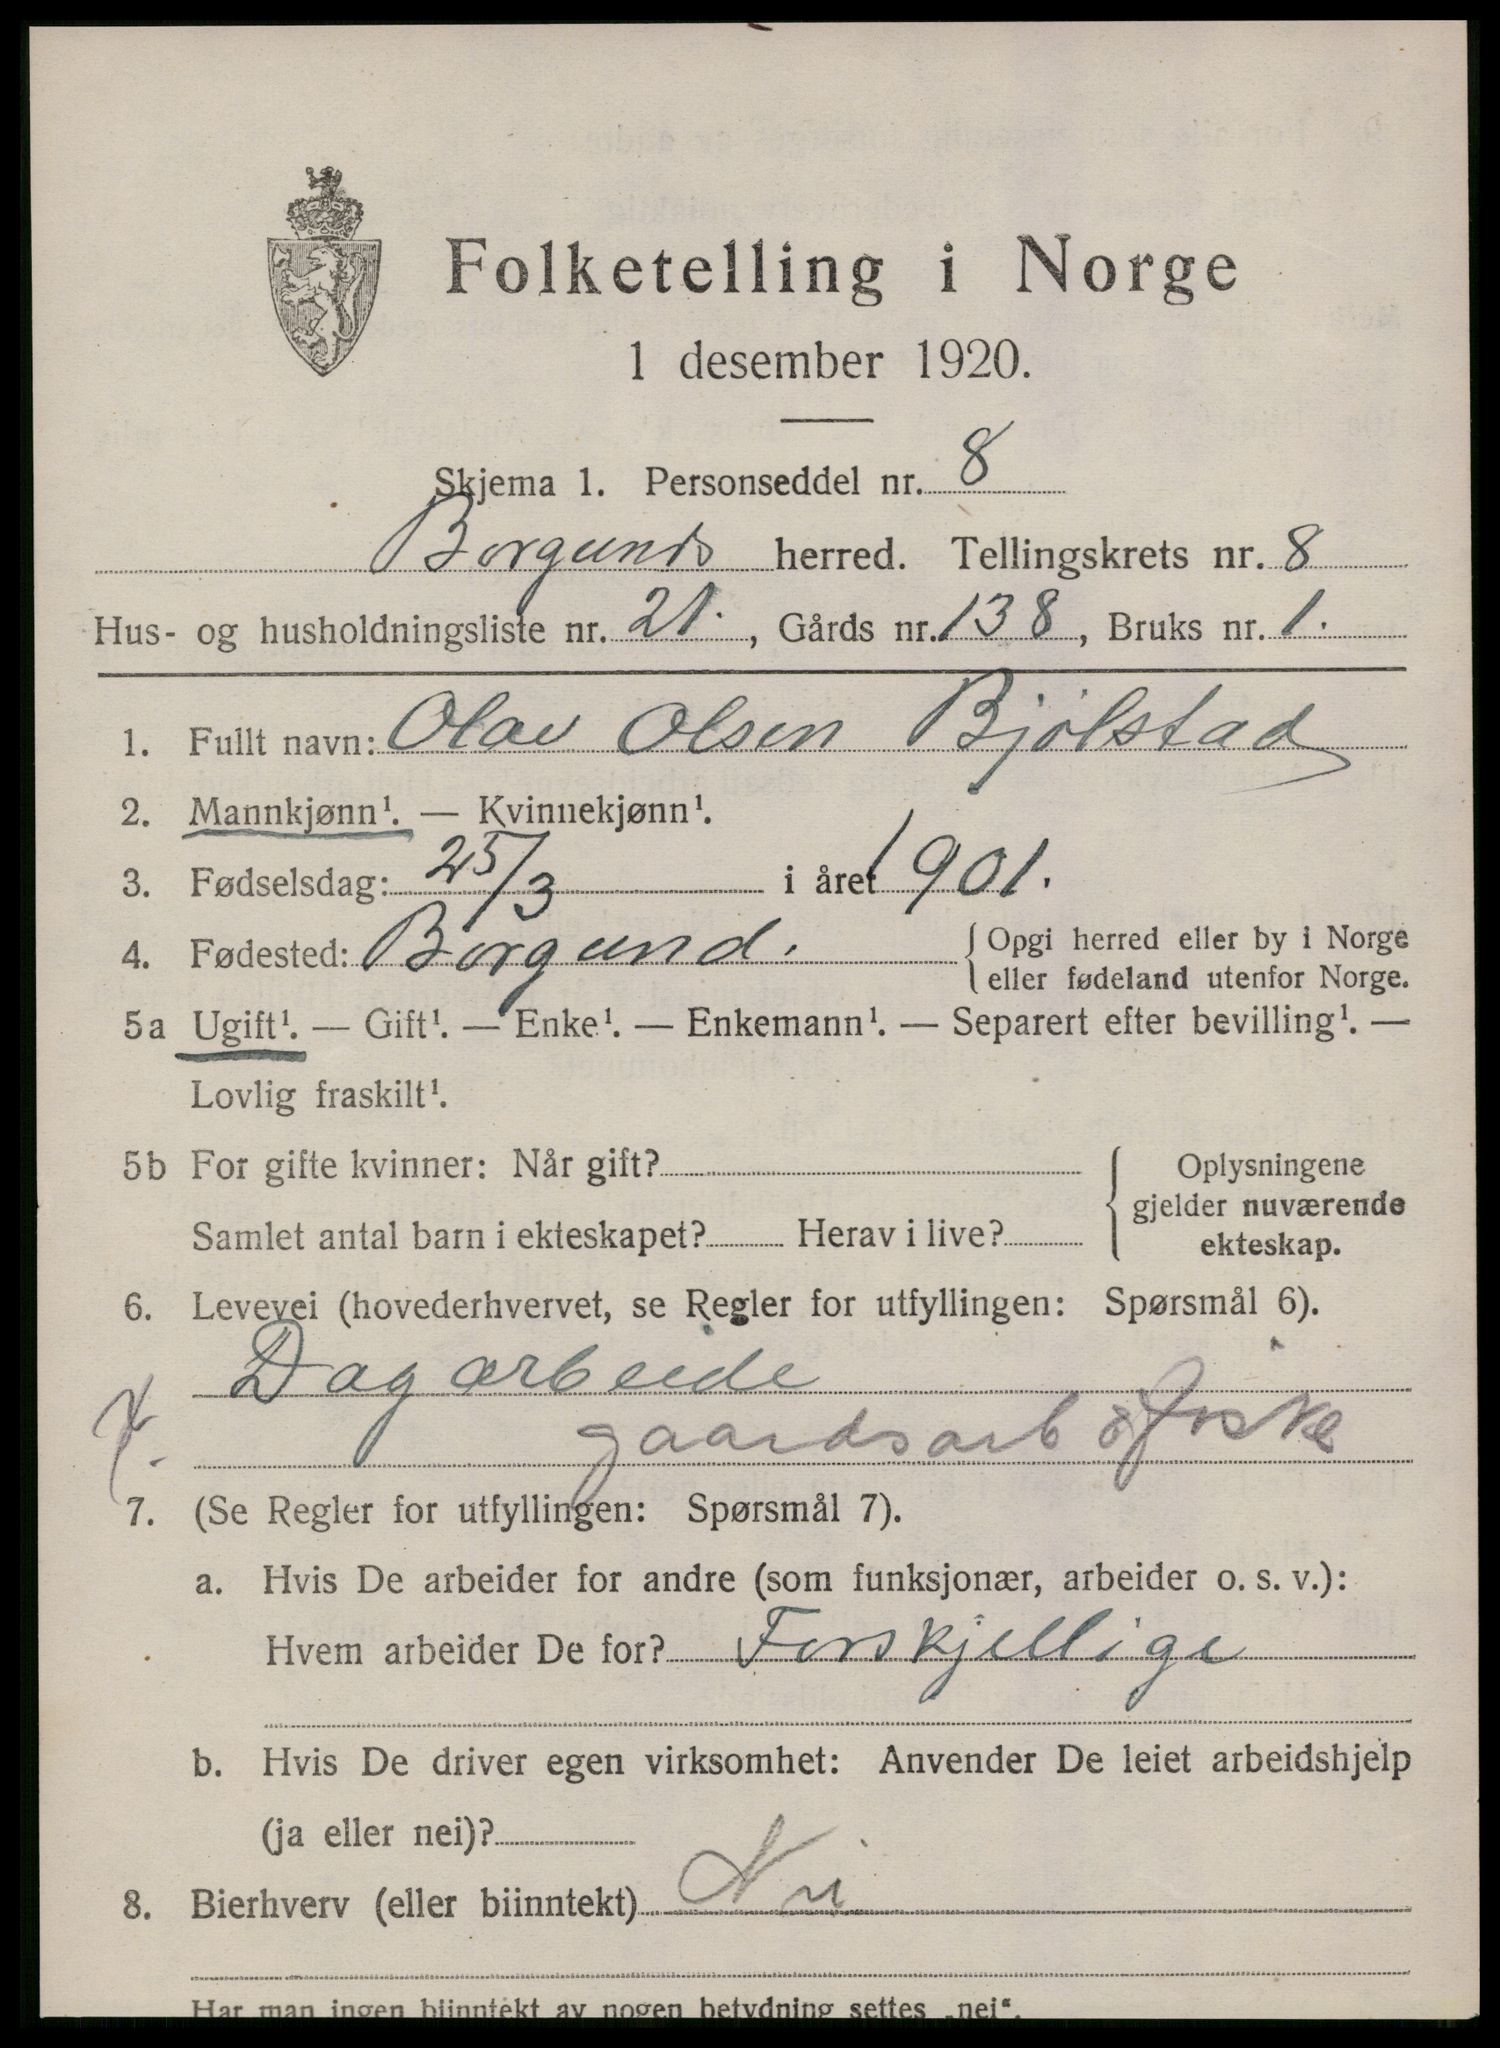 Folketelling i Norge
1 desember 1920.
Skjema 1. Personseddel nr. 8
Borgunds herred. Tellingskrets nr. 8
Hus- og husholdningsliste nr. 21. , Gårds nr. 138 , Bruks nr. 1.
1. Fullt navn: Olav Olsen Bjölstad
2. Mannkjønn¹. — Kvinnekjønn¹.
3. Fødselsdag: 25/3 i året 1901.
4. Fødested: Borgund. { Opgi herred eller by i Norge
eller fødeland utenfor Norge.
5a Ugift¹. — Gift¹. — Enke¹. — Enkemann¹. — Separert efter bevilling¹. —
Lovlig fraskilt¹.
5b For gifte kvinner: Når gift?
Samlet antal barn i ekteskapet? Herav i live?
{ Oplysningene
gjelder nuværende
ekteskap.
6. Levevei (hovederhvervet, se Regler for utfyllingen: Spørsmål 6).
Dagarbeide
gaardsarb o fiske
7. (Se Regler for utfyllingen: Spørsmål 7).
a. Hvis De arbeider for andre (som funksjonær, arbeider o. s. v.):
Hvem arbeider De for? Forskjellige
b. Hvis De driver egen virksomhet: Anvender De leiet arbeidshjelp
(ja eller nei)?
8. Bierhverv (eller biinntekt) Nei
Har man ingen biinntekt av nogen betydning settes „nei“.